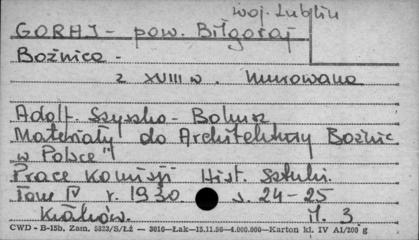 woj. Lublin
GORAJ - pow. Biłgoraj
Bożnica -
z XVIII w. murowana
Adolf. Szyszko - Bohusz
Materiały do Architektury Bożnic
w Polsce"
Prace Komisji Hist. Sztuki.
Tom IV r. 1930 s. 24-25
Kraków. il. 3
CWD - B-15b, Zam. 5323/S/Łż — 3016—Łak—15.11.56—4.000.000—Karton kl. IV A1/200 g